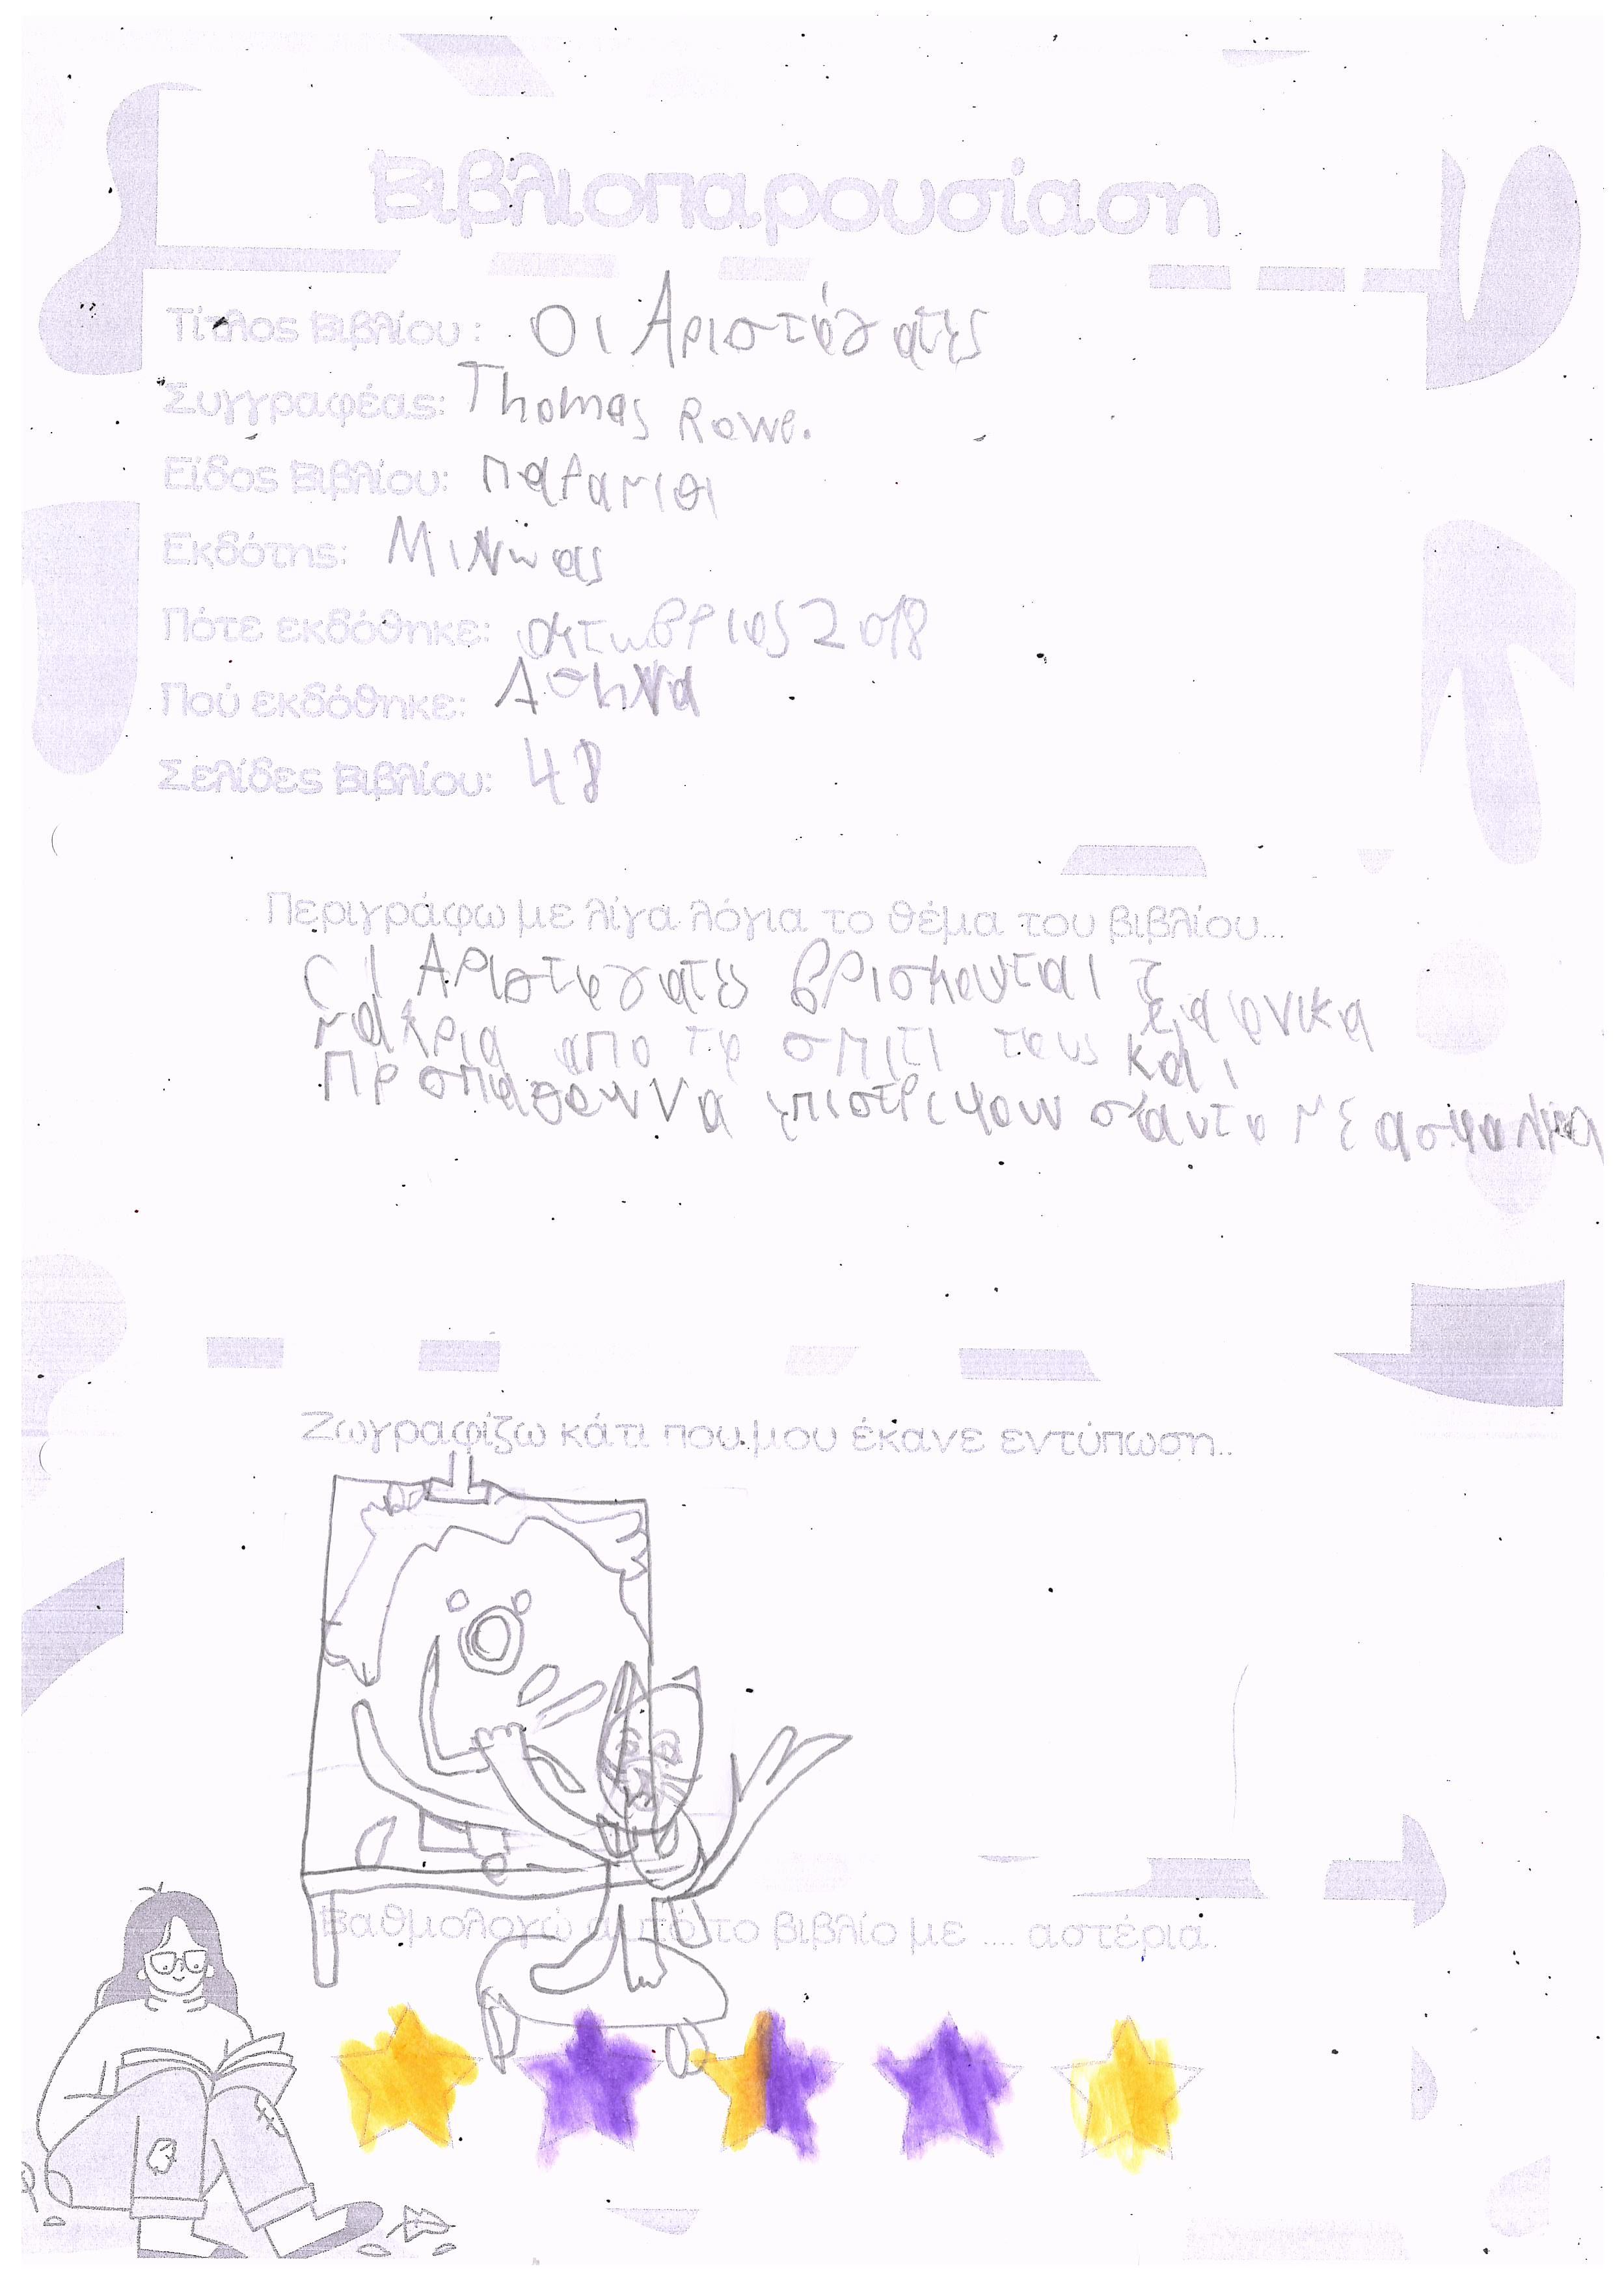 Βιβλιοπαρουσίαση
Τίτλος Βιβλίου: Οι Αριστόγατες
Συγγραφέας: Thomas Rowe.
Είδος Βιβλίου: παραμιθι
Εκδότης: Μινώας
Πότε εκδόθηκε: οκτωβριος 2018
Πού εκδόθηκε: Αθηνα
Σελίδες Βιβλίου: 48
Περιγράφω με λίγα λόγια το θέμα του βιβλίου...
Οι Αριστογατες βρισκονται ξαφνικα
μακρια απο το σπιτι τους και
Προσπαθουν να επιστρεψουν σ'αυτο με ασφαλεια
Ζωγραφίζω κάτι που μου έκανε εντύπωση..
Βαθμολογώ αυτό το βιβλίο με .... αστέρια.